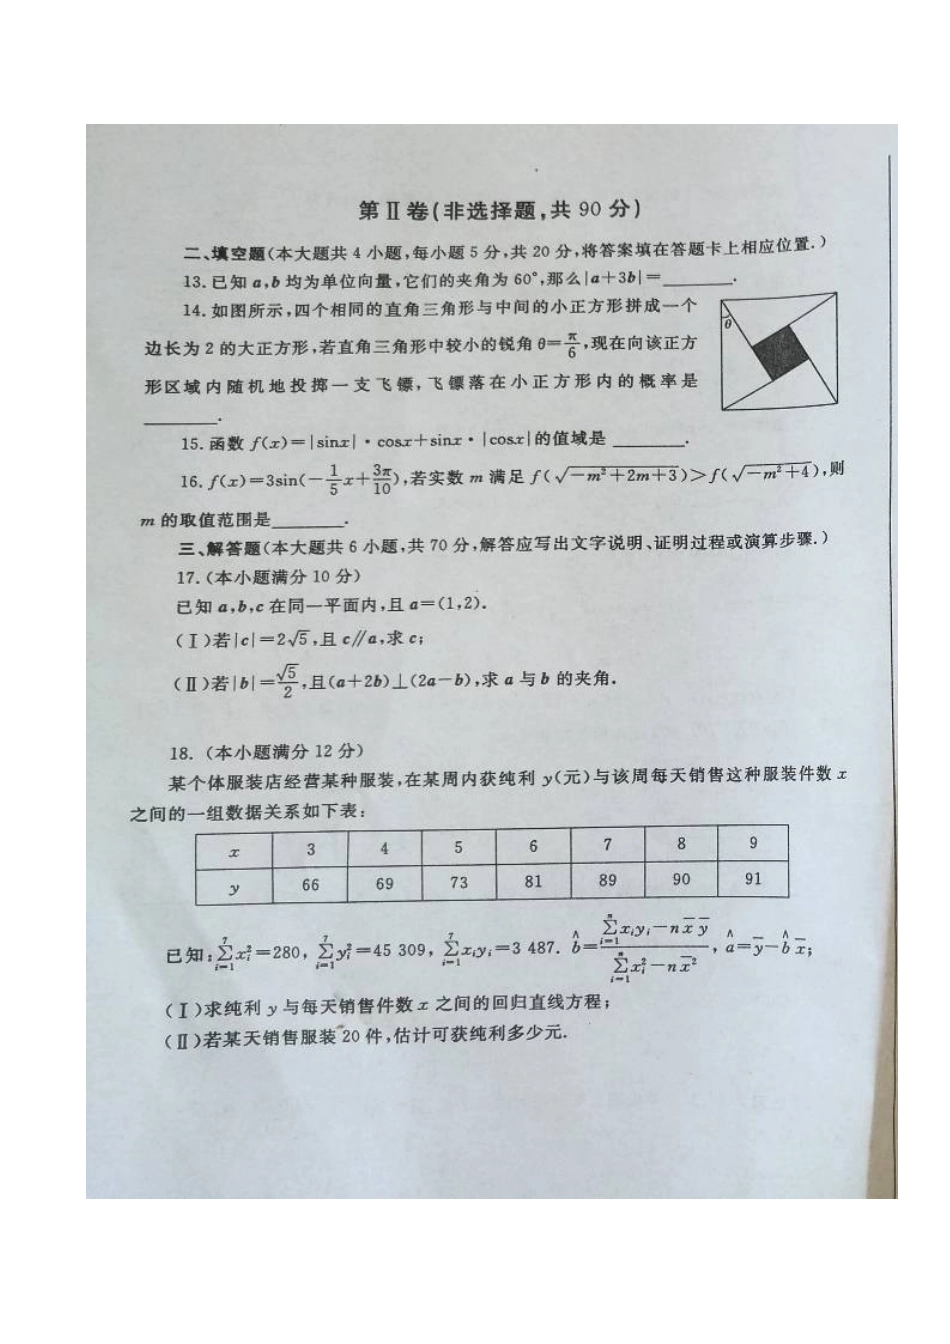 第Ⅱ卷(非选择题,共 90 分)
二、填空题(本大题共 4 小题,每小题 5 分,共 20 分,将答案填在答题卡上相应位置.)
13.已知 a,b 均为单位向量,它们的夹角为 60°,那么|a+3b|=______.
14.如图所示,四个相同的直角三角形与中间的小正方形拼成一个
边长为 2 的大正方形,若直角三角形中较小的锐角 θ=π/6,现在向该正方
形区域内随机地投掷一支飞镖,飞镖落在小正方形内的概率是
______.
θ
15.函数 f(x)=|sinx|·cosx+sinx·|cosx|的值域是 ______.
16.f(x)=3sin(-1/5x+3π/10),若实数 m 满足 f(√(-m²+2m+3))>f(√(-m²+4)),则
m 的取值范围是______.
三、解答题(本大题共 6 小题,共 70 分,解答应写出文字说明、证明过程或演算步骤.)
17.(本小题满分 10 分)
已知 a,b,c 在同一平面内,且 a=(1,2).
(Ⅰ)若|c|=2√5,且 c∥a,求 c;
(Ⅱ)若|b|=√5/2,且(a+2b)⊥(2a-b),求 a 与 b 的夹角.
18.(本小题满分 12 分)
某个体服装店经营某种服装,在某周内获纯利 y(元)与该周每天销售这种服装件数 x
之间的一组数据关系如下表:
x 3 4 5 6 7 8 9
y 66 69 73 81 89 90 91
已知:∑_{i=1}^{7}x_i²=280,∑_{i=1}^{7}y_i²=45 309,∑_{i=1}^{7}x_iy_i=3 487. b̂=(∑_{i=1}^{n}x_iy_i-nx̄ȳ)/(∑_{i=1}^{n}x_i²-nx̄²),â=ȳ-b̂x̄;
(Ⅰ)求纯利 y 与每天销售件数 x 之间的回归直线方程;
(Ⅱ)若某天销售服装 20 件,估计可获纯利多少元.